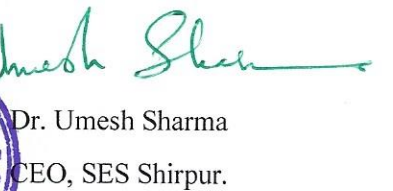 Umesh Sharma
Dr. Umesh Sharma
CEO, SES Shirpur.